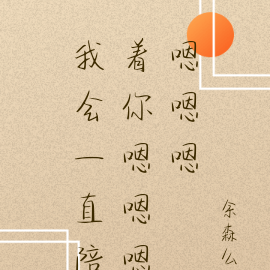 我会一直陪
着你嗯嗯嗯
嗯嗯嗯
余森么